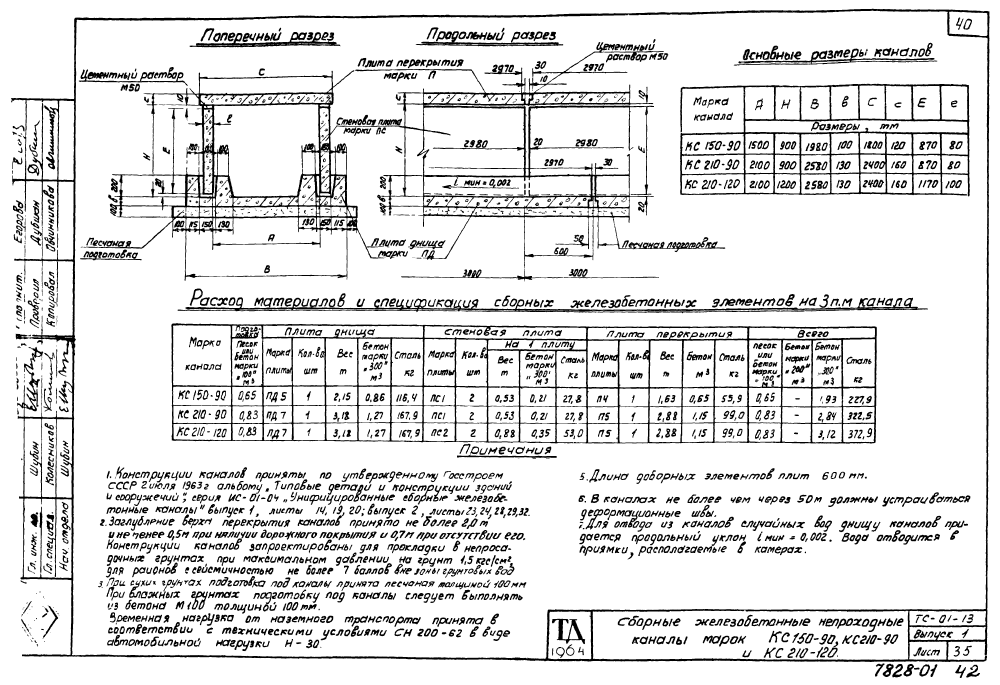 40
Поперечный разрез
Продольный разрез
Основные размеры каналов
Цементный раствор М50
Плита перекрытия марки П
Стеновая плита марки ПС
Цементный раствор М50
Песчаная подготовка
Плита днища марки ПД
Песчаная подготовка
2970 30 2970
10
2980 20 2980
2970 30
i мин = 0,002
50
600
3000 3000
100 115 150 130
130 150 115 100
A
B
C
H
E
Марка канала A H B b C c E e
Размеры, mm
КС 150-90 1500 900 1980 100 1800 120 870 80
КС 210-90 2100 900 2580 130 2400 160 870 80
КС 210-120 2100 1200 2580 130 2400 160 1170 100
Расход материалов и спецификация сборных железобетонных элементов на 3 п.м канала
Марка канала
Подготовка
Песок или бетон марки „100" м3
Плита днища
Марка плиты Кол-во шт Вес т Бетон марки „300" м3 Сталь кг
Стеновая плита
Марка плиты Кол-во шт
На 1 плиту
Вес т Бетон марки „300" м3 Сталь кг
Плита перекрытия
Марка плиты Кол-во шт Вес т Бетон м3 Сталь кг
Всего
песок или бетон марки „100" м3 Бетон марки „200" м3 Бетон марки „300" м3 Сталь кг
КС 150-90 0,65 ПД5 1 2,15 0,86 116,4 ПС1 2 0,53 0,21 27,8 П4 1 1,63 0,65 55,9 0,65 – 1,93 227,9
КС 210-90 0,83 ПД7 1 3,18 1,27 167,9 ПС1 2 0,53 0,21 27,8 П5 1 2,88 1,15 99,0 0,83 – 2,84 322,5
КС 210-120 0,83 ПД7 1 3,18 1,27 167,9 ПС2 2 0,88 0,35 53,0 П5 1 2,88 1,15 99,0 0,83 – 3,12 372,9
Примечания
1. Конструкции каналов приняты по утвержденному Госстроем
СССР 2 июля 1963г альбому „Типовые детали и конструкции зданий
и сооружений", серия ИС-01-04 „Унифицированные сборные железобе-
тонные каналы" выпуск 1, листы 14, 19, 20; выпуск 2, листы 23, 24, 28, 29, 32.
2. Заглубление верха перекрытия каналов принято не более 2,0 м
и не менее 0,5м при наличии дорожного покрытия и 0,7м при отсутствии его.
Конструкции каналов запроектированы для прокладки в непроса-
дочных грунтах при максимальном давлении на грунт 1,5 кгс/см²
для районов с сейсмичностью не более 7 баллов вне зоны грунтовых вод
3. При сухих грунтах подготовка под каналы принята песчаная толщиной 100мм
При влажных грунтах подготовку под каналы следует выполнять
из бетона М100 толщиной 100 mm.
Временная нагрузка от наземного транспорта принята в
соответствии с техническими условиями СН 200-62 в виде
автомобильной нагрузки Н-30.
5. Длина доборных элементов плит 600 mm.
6. В каналах не более чем через 50м должны устраиваться
деформационные швы.
7. Для отвода из каналов случайных вод днищу каналов при-
дается продольный уклон i мин = 0,002. Вода отводится в
приямки, располагаемые в камерах.
ТД
1964
Сборные железобетонные непроходные
каналы марок КС150-90, КС210-90
и КС 210-120.
ТС-01-13
Выпуск 1
Лист 35
7828-01 42
Егорова
Дубшкан
Овчинникова
Проверил
Копировал
Гл. инж.
Гл. специал.
Нач. отдела
Шубин
Колесников
Шубин